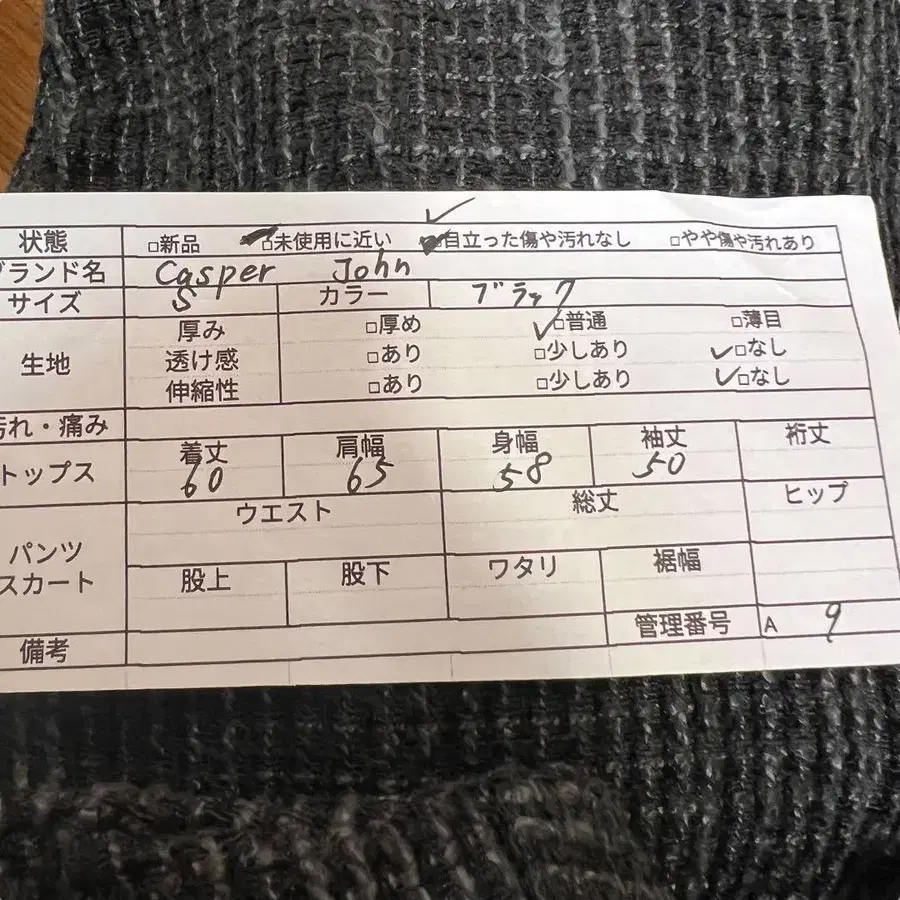 状態 □新品 □未使用に近い □目立った傷や汚れなし □やや傷や汚れあり
ブランド名 Casper John
サイズ S カラー ブラック
生地 厚み □厚め ✓□普通 □薄目
透け感 □あり □少しあり ✓□なし
伸縮性 □あり □少しあり ✓□なし
汚れ・痛み
トップス 着丈 肩幅 身幅 袖丈 裄丈
60 65 58 50
ウエスト 総丈 ヒップ
パンツ
スカート 股上 股下 ワタリ 裾幅
備考 管理番号 A 9